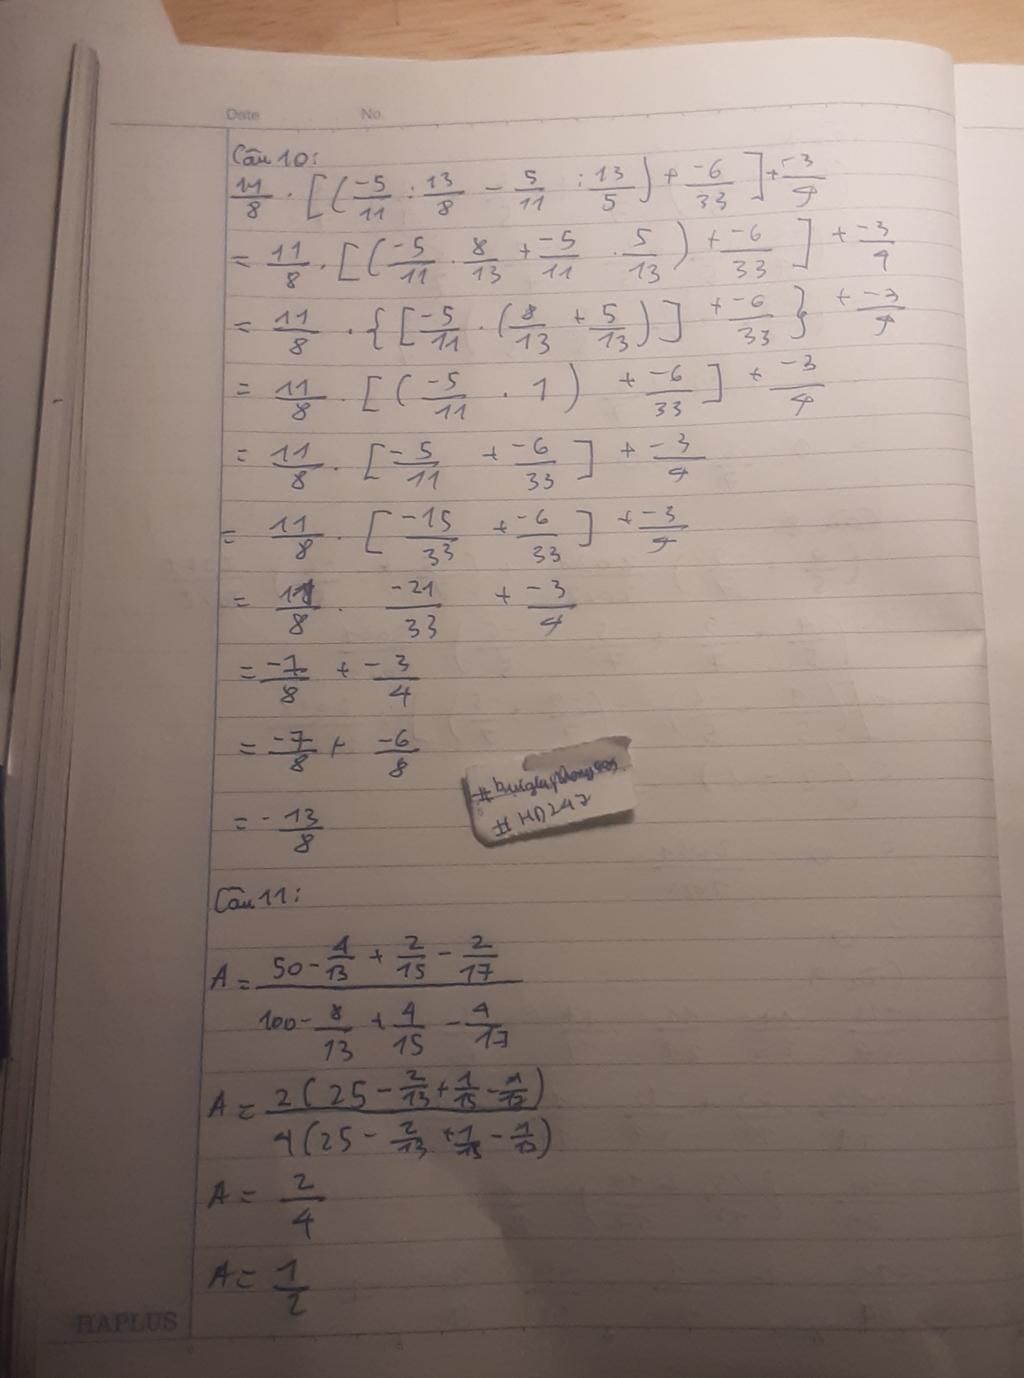 Date No.
Câu 10:
11/8 . [(-5/11 : 13/8 - 5/11 : 13/5) + -6/33] + -3/4
= 11/8 . [(-5/11 . 8/13 + -5/11 . 5/13) + -6/33] + -3/4
= 11/8 . {[-5/11 . (8/13 + 5/13)] + -6/33} + -3/4
= 11/8 . [(-5/11 . 1) + -6/33] + -3/4
= 11/8 . [-5/11 + -6/33] + -3/4
= 11/8 . [-15/33 + -6/33] + -3/4
= 11/8 . -21/33 + -3/4
= -7/8 + -3/4
= -7/8 + -6/8
= -13/8
#HD247
Câu 11:
A = (50 - 4/13 + 2/15 - 2/17)/(100 - 8/13 + 4/15 - 4/17)
A = 2(25 - 2/13 + 1/15 - 1/17)/4(25 - 2/13 + 1/15 - 1/17)
A = 2/4
A = 1/2
HAPLUS